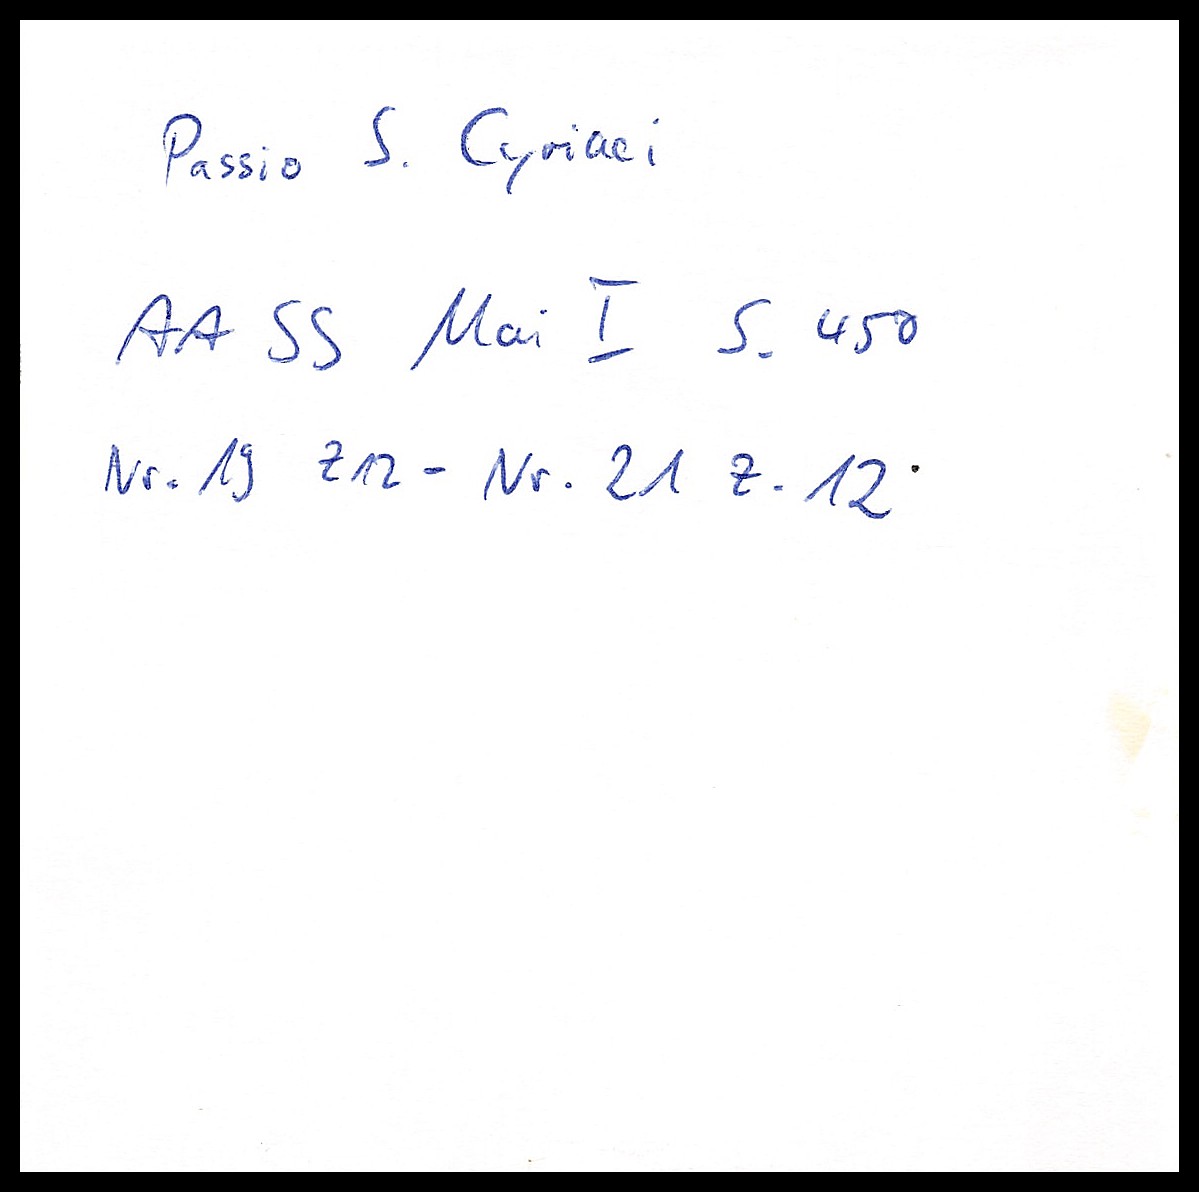 Passio S. Cyriaci
AA SS Mai I S. 450
Nr. 19 Z12 - Nr. 21 Z. 12.